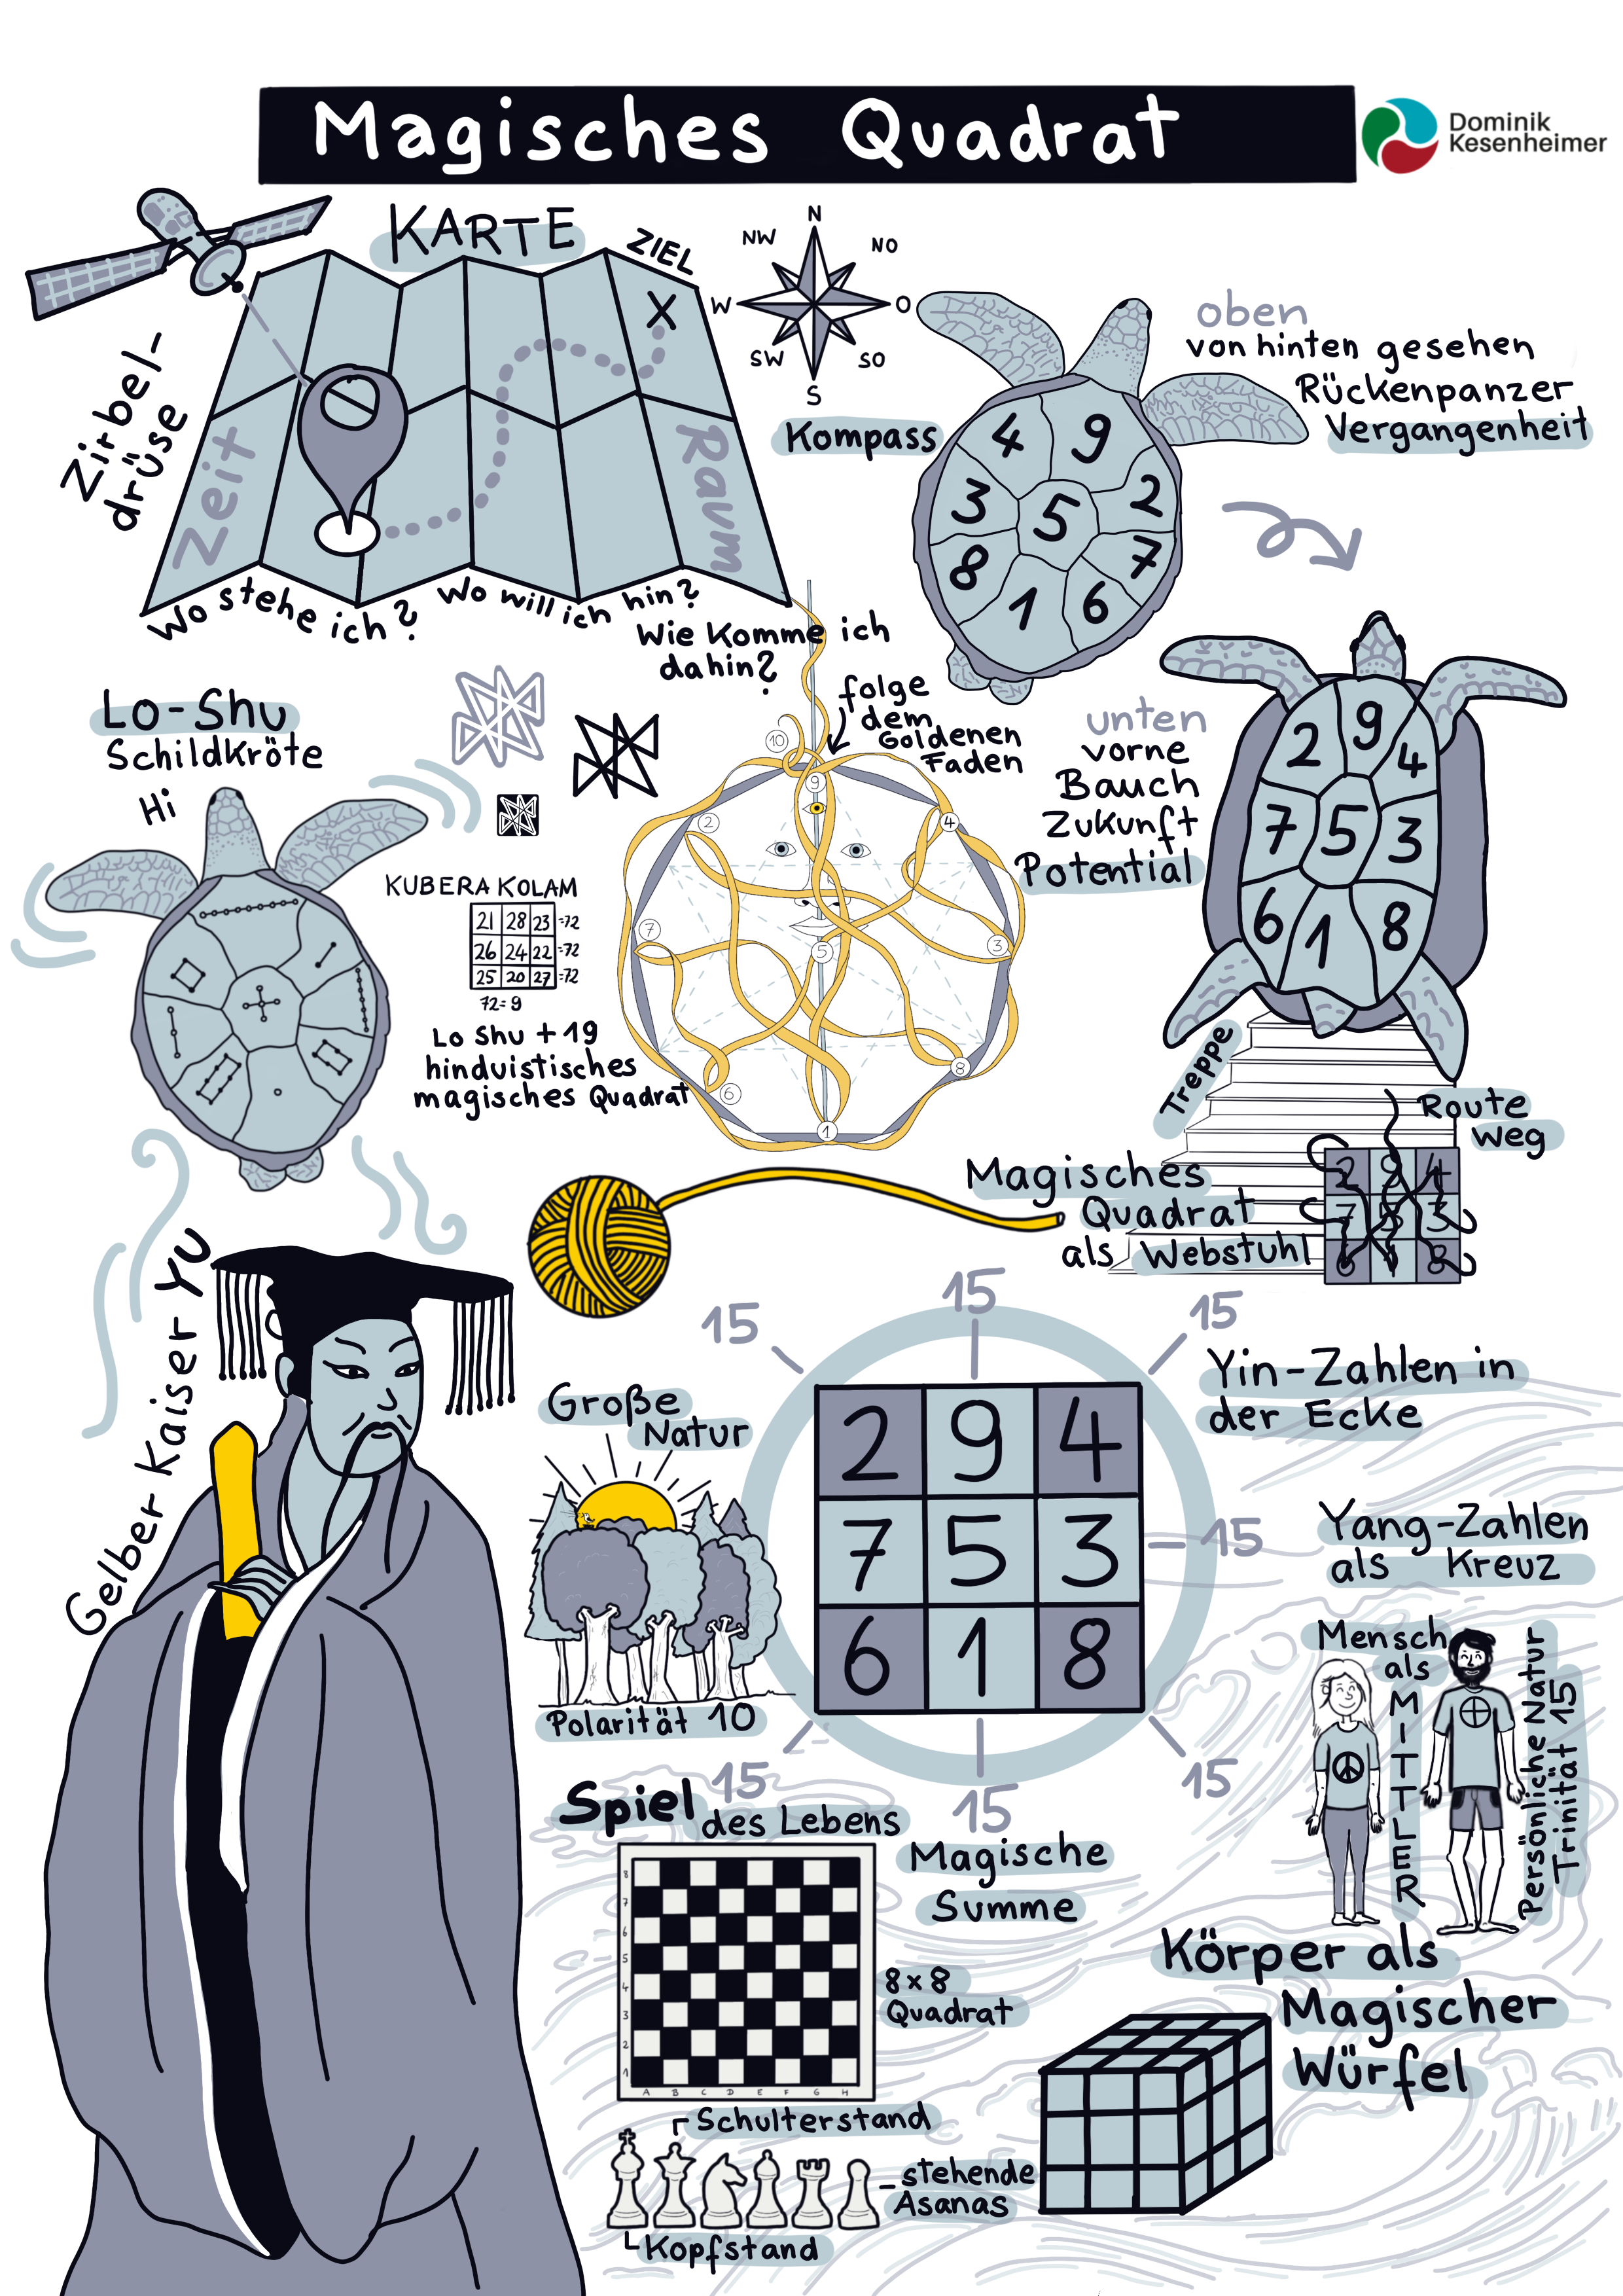 Magisches Quadrat
Dominik
Kesenheimer
KARTE
ZIEL
X
Zirbel-
drüse
Zeit
Raum
Wo stehe ich?
Wo will ich hin?
Wie Komme ich
dahin?
N
NW
NO
W
O
SW
SO
S
Kompass
oben
von hinten gesehen
Rückenpanzer
Vergangenheit
4 9 2
3 5 7
8 1 6
folge
dem
Goldenen
Faden
unten
vorne
Bauch
Zukunft
Potential
2 9 4
7 5 3
6 1 8
Lo-Shu
Schildkröte
Hi
KUBERA KOLAM
21 28 23 =72
26 24 22 =72
25 20 27 =72
72=9
Lo Shu + 19
hinduistisches
magisches Quadrat
10
9
2
4
7
5
3
6
8
1
Treppe
Route
Weg
2 9 4
7 5 3
6 1 8
Magisches
Quadrat
als Webstuhl
Gelber Kaiser YU
15
15
15
15
15
15
15
2 9 4
7 5 3
6 1 8
Yin-Zahlen in
der Ecke
Yang-Zahlen
als Kreuz
Große
Natur
Polarität 10
Mensch
als
MITTLER
Persönliche Natur
Trinität 15
Spiel des Lebens
Magische
Summe
8
7
6
5
4
3
2
1
A B C D E F G H
8x8
Quadrat
Schulterstand
stehende
Asanas
Kopfstand
Körper als
Magischer
Würfel